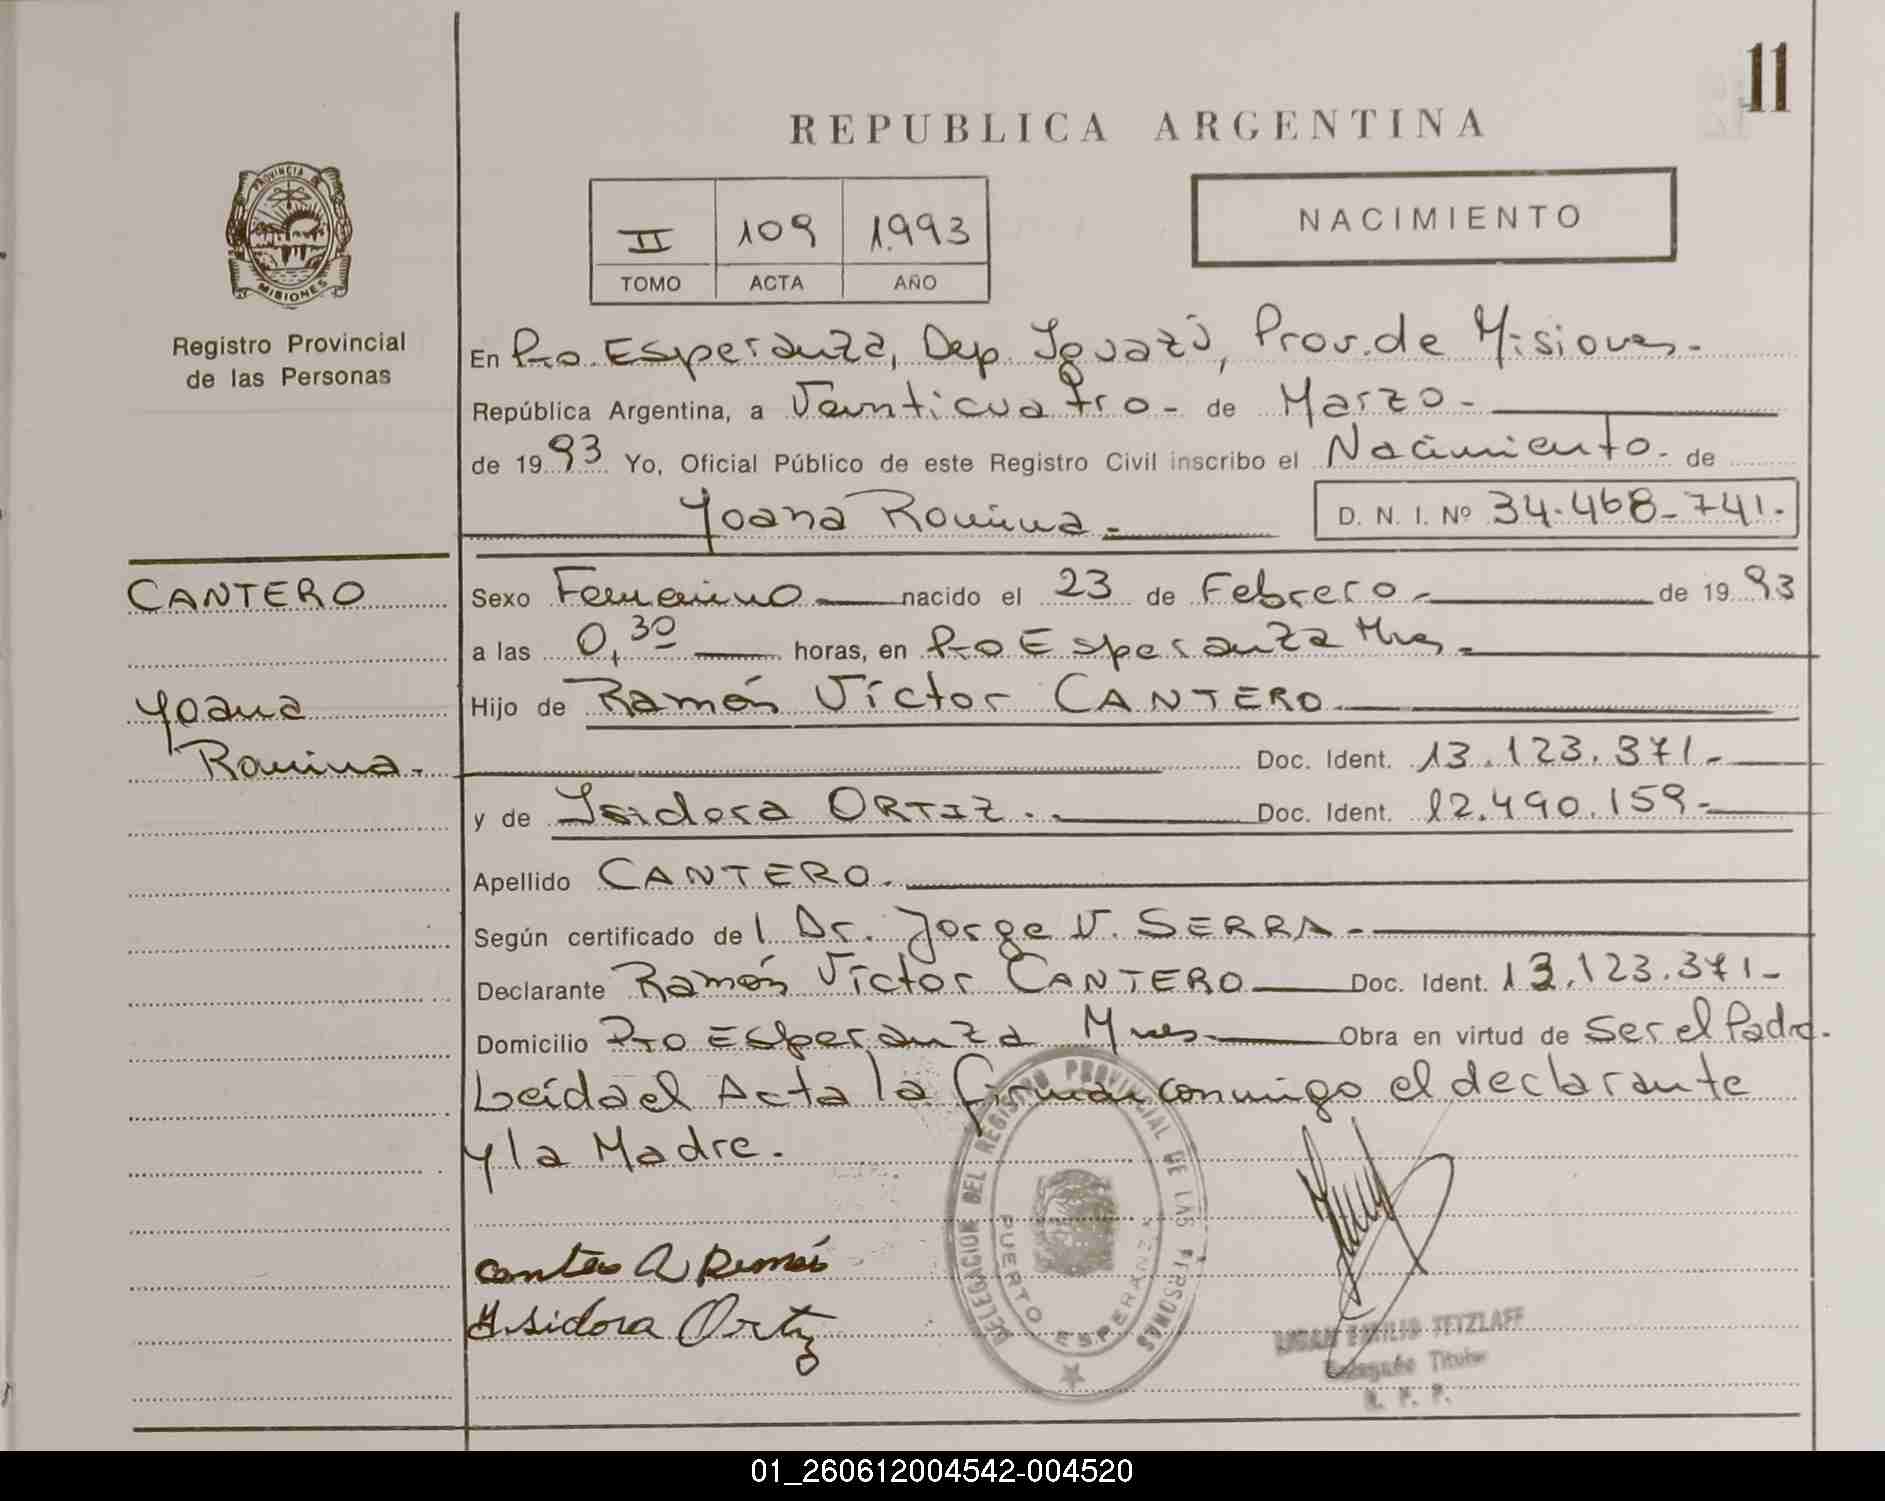 11
REPUBLICA ARGENTINA
PROVINCIA DE
MISIONES
Registro Provincial
de las Personas
II 109 1.993
TOMO ACTA AÑO
NACIMIENTO
En Pto. Esperanza, Dep. Iguazú, Prov. de Misiones.-
República Argentina, a Veinticuatro - de Marzo -
de 1993 Yo, Oficial Público de este Registro Civil inscribo el Nacimiento - de
Yoana Romina.- D. N. I. Nº 34.468.741.-
CANTERO
Yoana
Romina.-
Sexo Femenino nacido el 23 de Febrero.- de 1993
a las 0,30 horas, en Pto Esperanza Mnes.-
Hijo de Ramón Víctor CANTERO.
Doc. Ident. 13.123.371.-
y de Isidora ORTIZ.- Doc. Ident. 12.490.159.-
Apellido CANTERO.
Según certificado del Dr. Jorge V. SERRA.-
Declarante Ramón Víctor CANTERO Doc. Ident. 13.123.371-
Domicilio Pto Esperanza Mnes Obra en virtud de Ser el Padre.
Leída el Acta la firman conmigo el declarante
y la Madre.
DELEGACION DEL REGISTRO PROVINCIAL DE LAS PERSONAS
PUERTO ESPERANZA
Isidora Ortiz
EMILIO TETZLAFF
Delegado Titular
R. P. P.
01_260612004542-004520